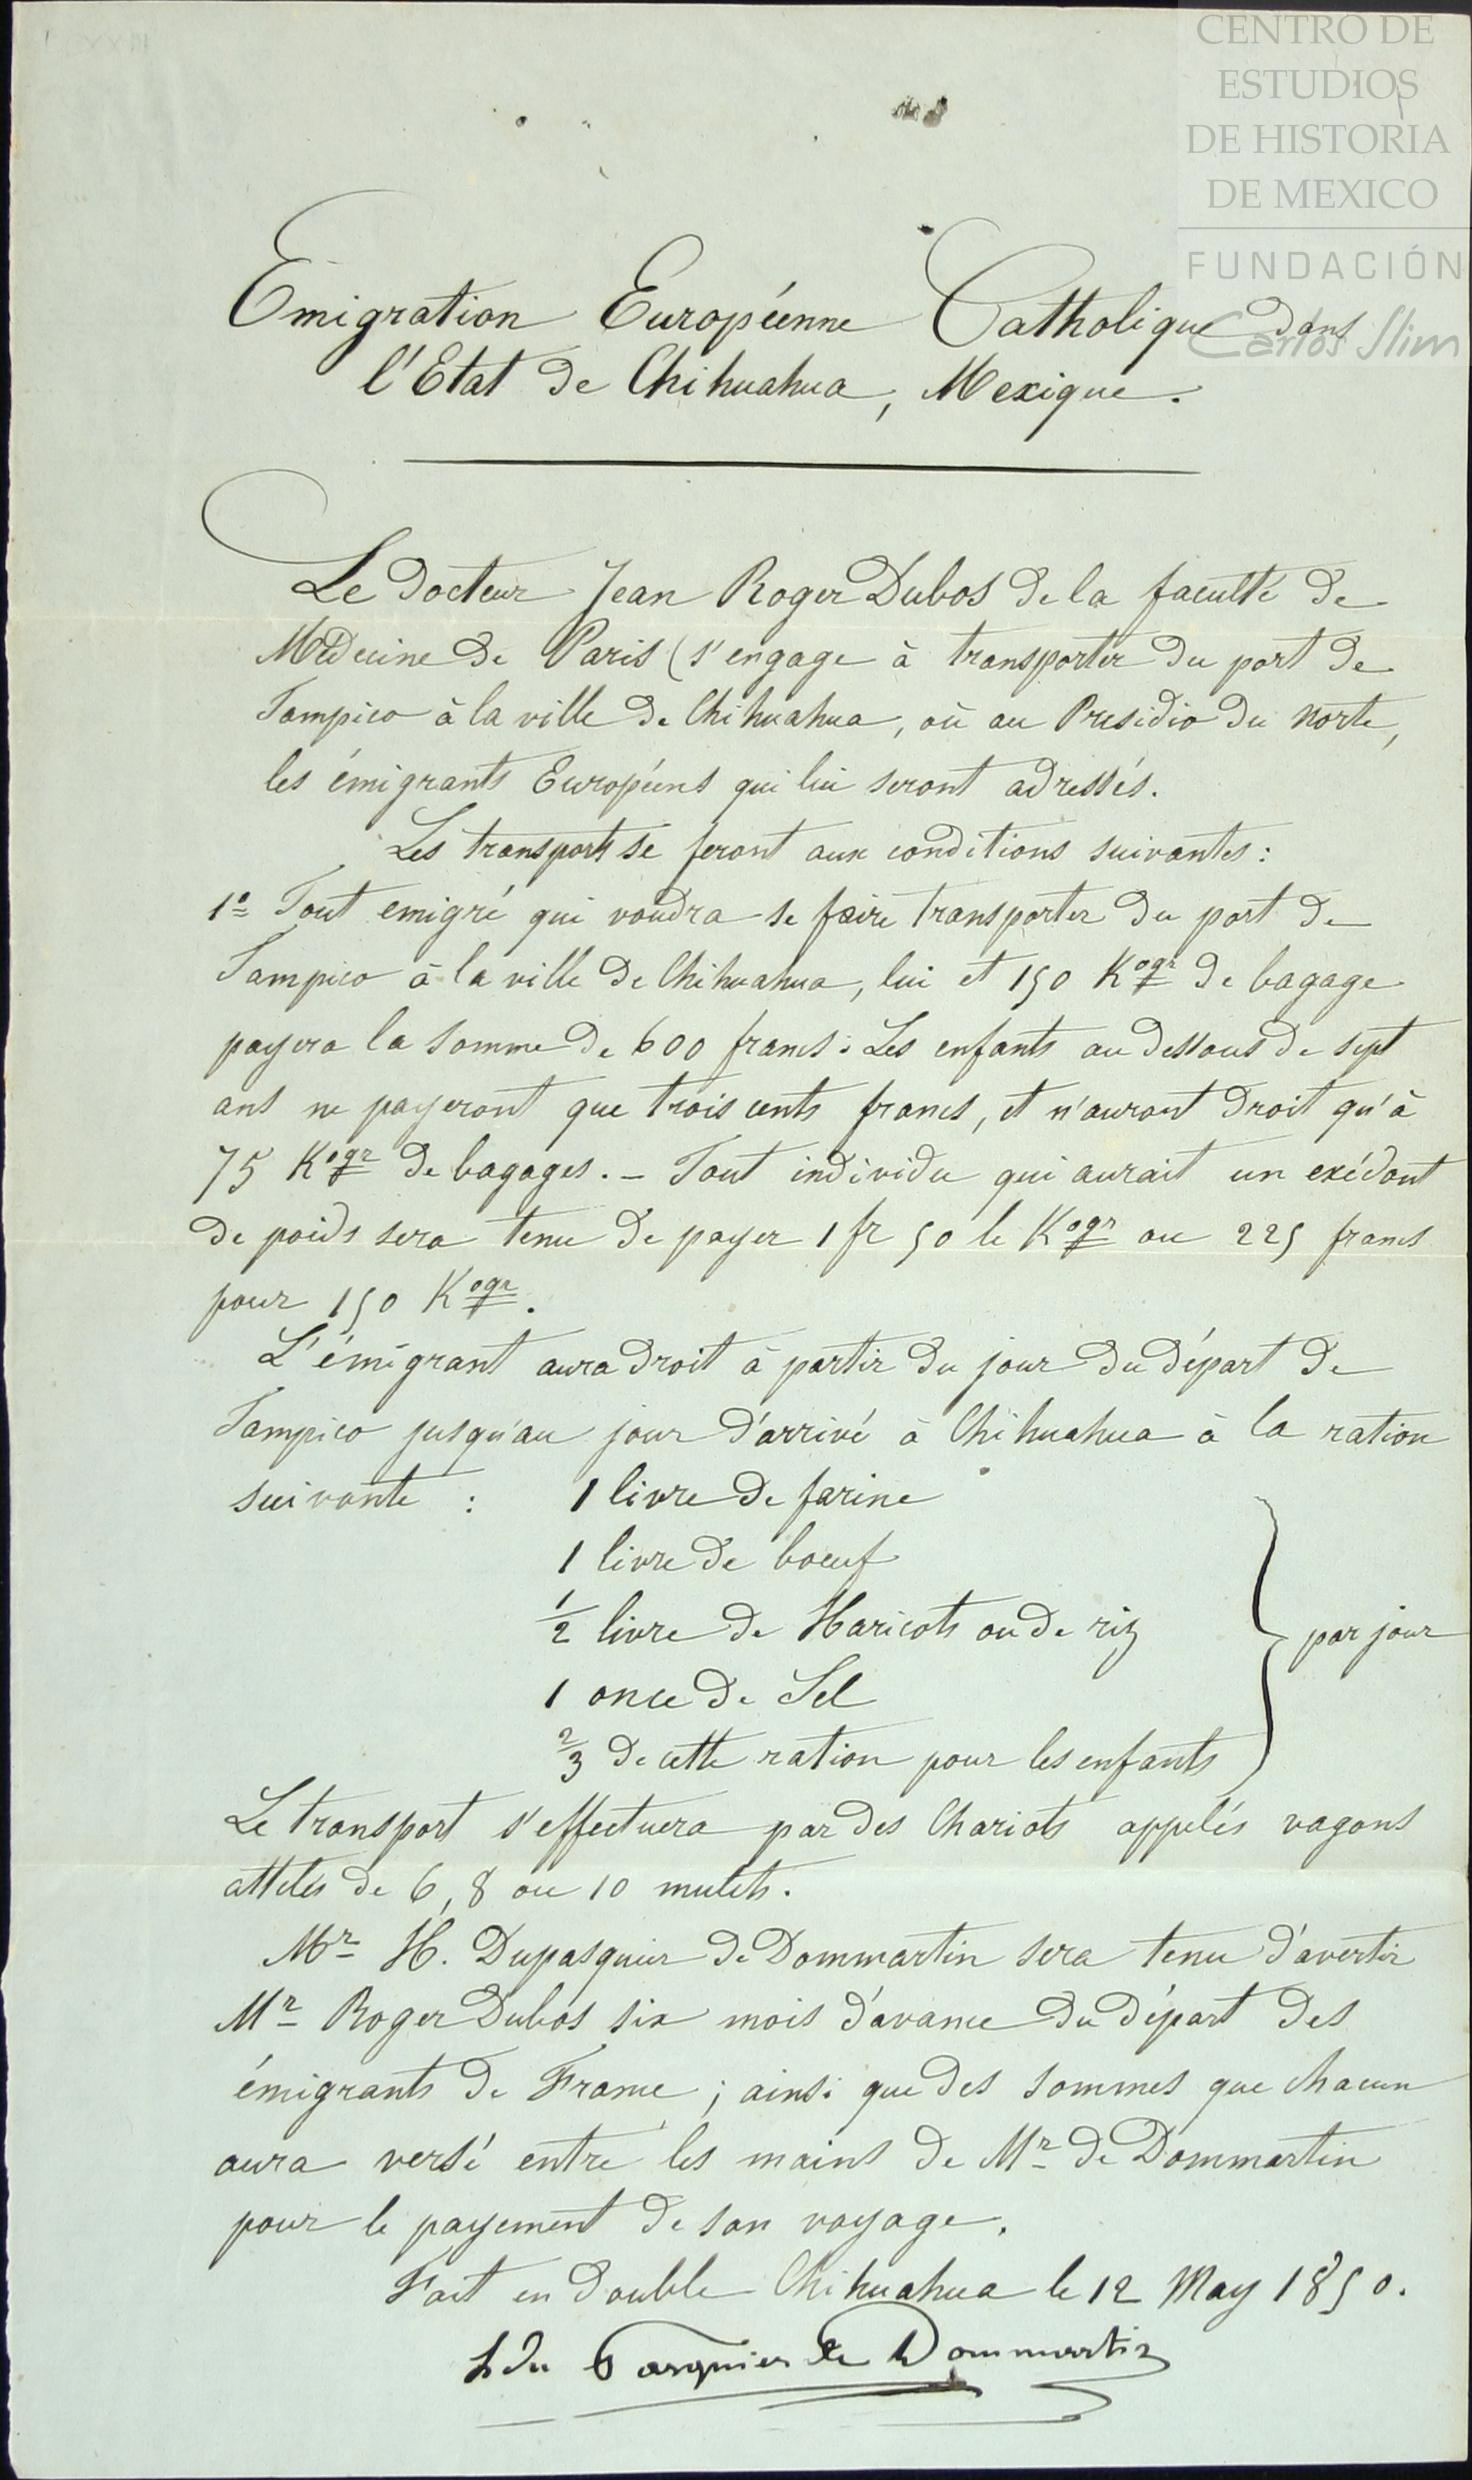 CENTRO DE
ESTUDIOS
DE HISTORIA
DE MEXICO
FUNDACIÓN
Carlos Slim
Emigration Européenne Catholique dans
l'Etat de Chihuahua, Mexique.
Le docteur Jean Roger Dubos de la faculté de
Médecine de Paris (s'engage à transporter du port de
Tampico à la ville de Chihuahua, où au Presidio du Norte,
les émigrants Européens qui lui seront adressés.
Les transports se feront aux conditions suivantes :
1º Tout emigré qui voudra se faire transporter du port de
Tampico à la ville de Chihuahua, lui et 150 Kogr de bagage
payera la somme de 600 francs : Les enfants au dessous de sept
ans ne payeront que trois cents francs, et n'auront droit qu'à
75 Kogr de bagages. - Tout individu qui aurait un exédant
de poids sera tenu de payer 1 fr 50 le Kogr ou 225 francs
pour 150 Kogr.
L'émigrant aura droit à partir du jour du départ de
Tampico jusqu'au jour d'arrivé à Chihuahua à la ration
suivante : 1 livre de farine
1 livre de boeuf
1/2 livre de Haricots ou de riz } par jour
1 once de Sel
2/3 de cette ration pour les enfants
Le transport s'effectuera par des Chariots appelés vagons
attelés de 6, 8 ou 10 mulets.
Mr H. Dupasquier de Dommartin sera tenu d'avertir
Mr Roger Dubos six mois d'avance du départ des
émigrants de France ; ainsi que des sommes que chacun
aura versé entre les mains de Mr de Dommartin
pour le payement de son voyage.
Fait en double Chihuahua le 12 May 1850.
h du Pasquier de Dommartin